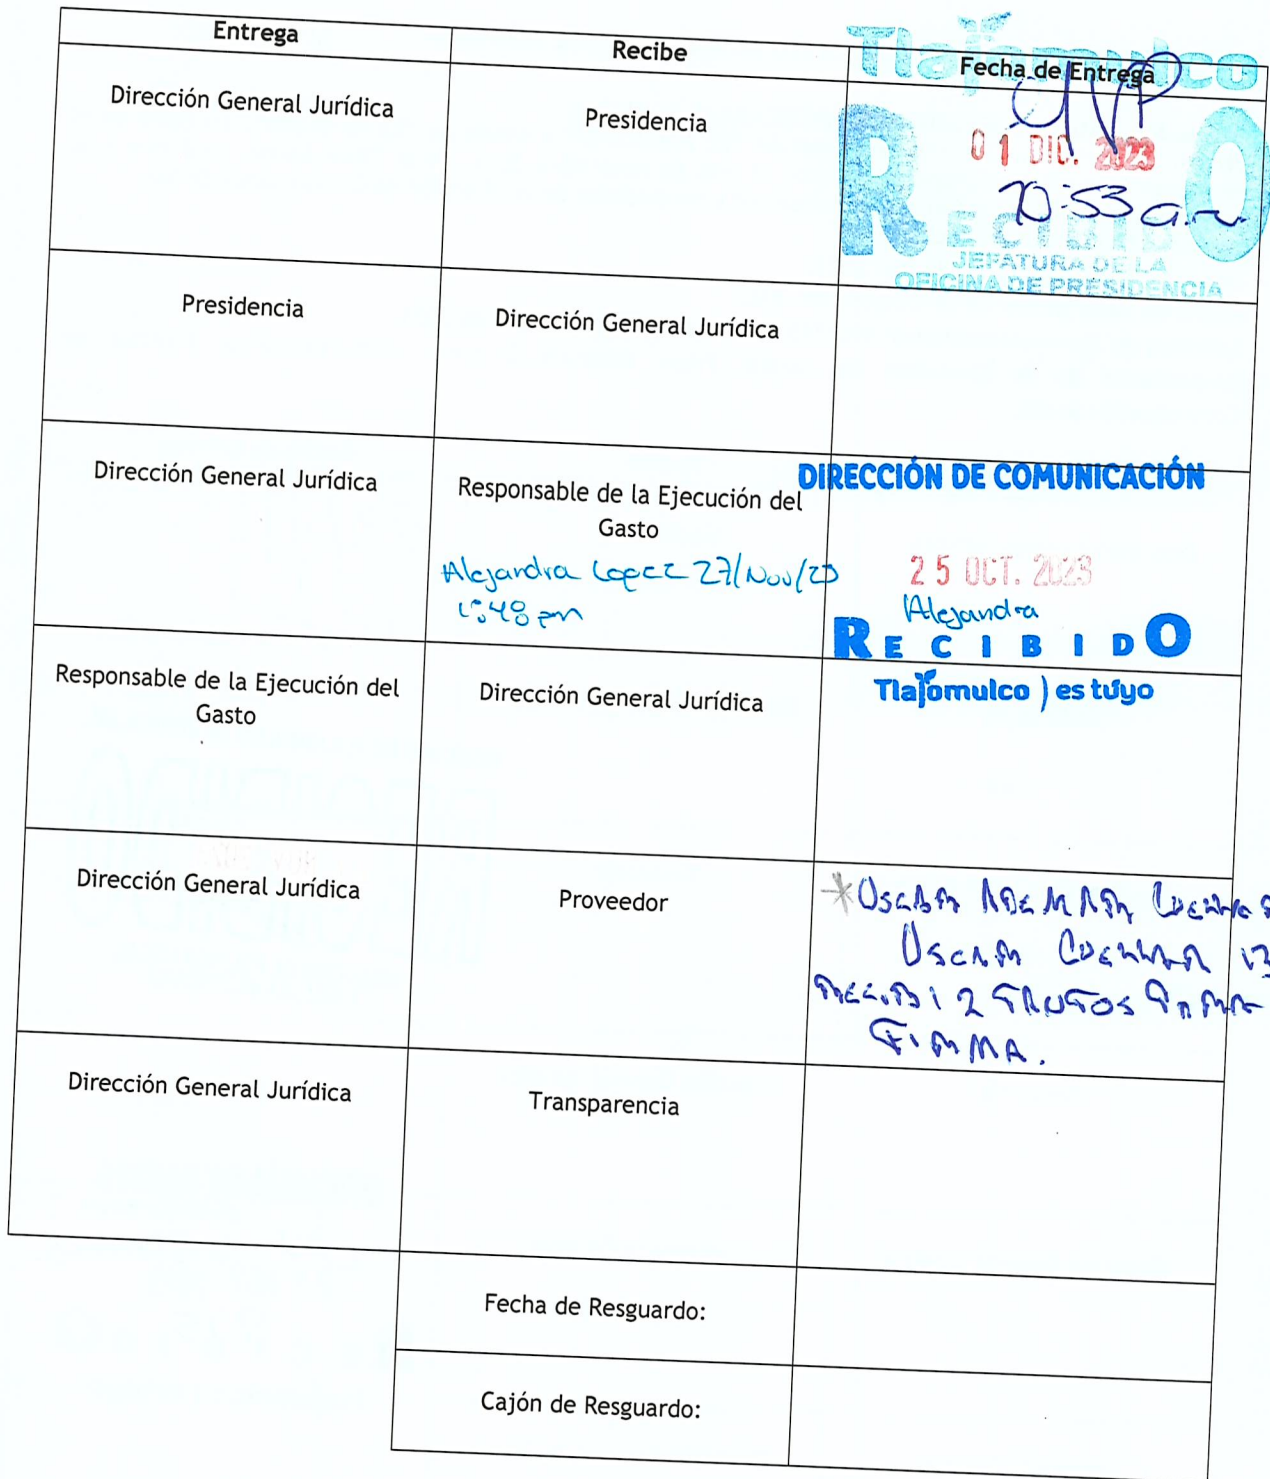 Entrega
Recibe
Fecha de Entrega
Tlajomulco
Dirección General Jurídica
Presidencia
01 DIC. 2023
10:53 a.m.
RECIBIDO
JEFATURA DE LA
OFICINA DE PRESIDENCIA
Presidencia
Dirección General Jurídica
Dirección General Jurídica
Responsable de la Ejecución del
Gasto
Alejandra Lopez 27/Nov/23
1:48 pm
DIRECCIÓN DE COMUNICACIÓN
25 OCT. 2023
Alejandra
RECIBIDO
Tlajomulco ) es tuyo
Responsable de la Ejecución del
Gasto
Dirección General Jurídica
Dirección General Jurídica
Proveedor
Oscar
Oscar Cuellar
Recibi 2
Firma.
Dirección General Jurídica
Transparencia
Fecha de Resguardo:
Cajón de Resguardo: